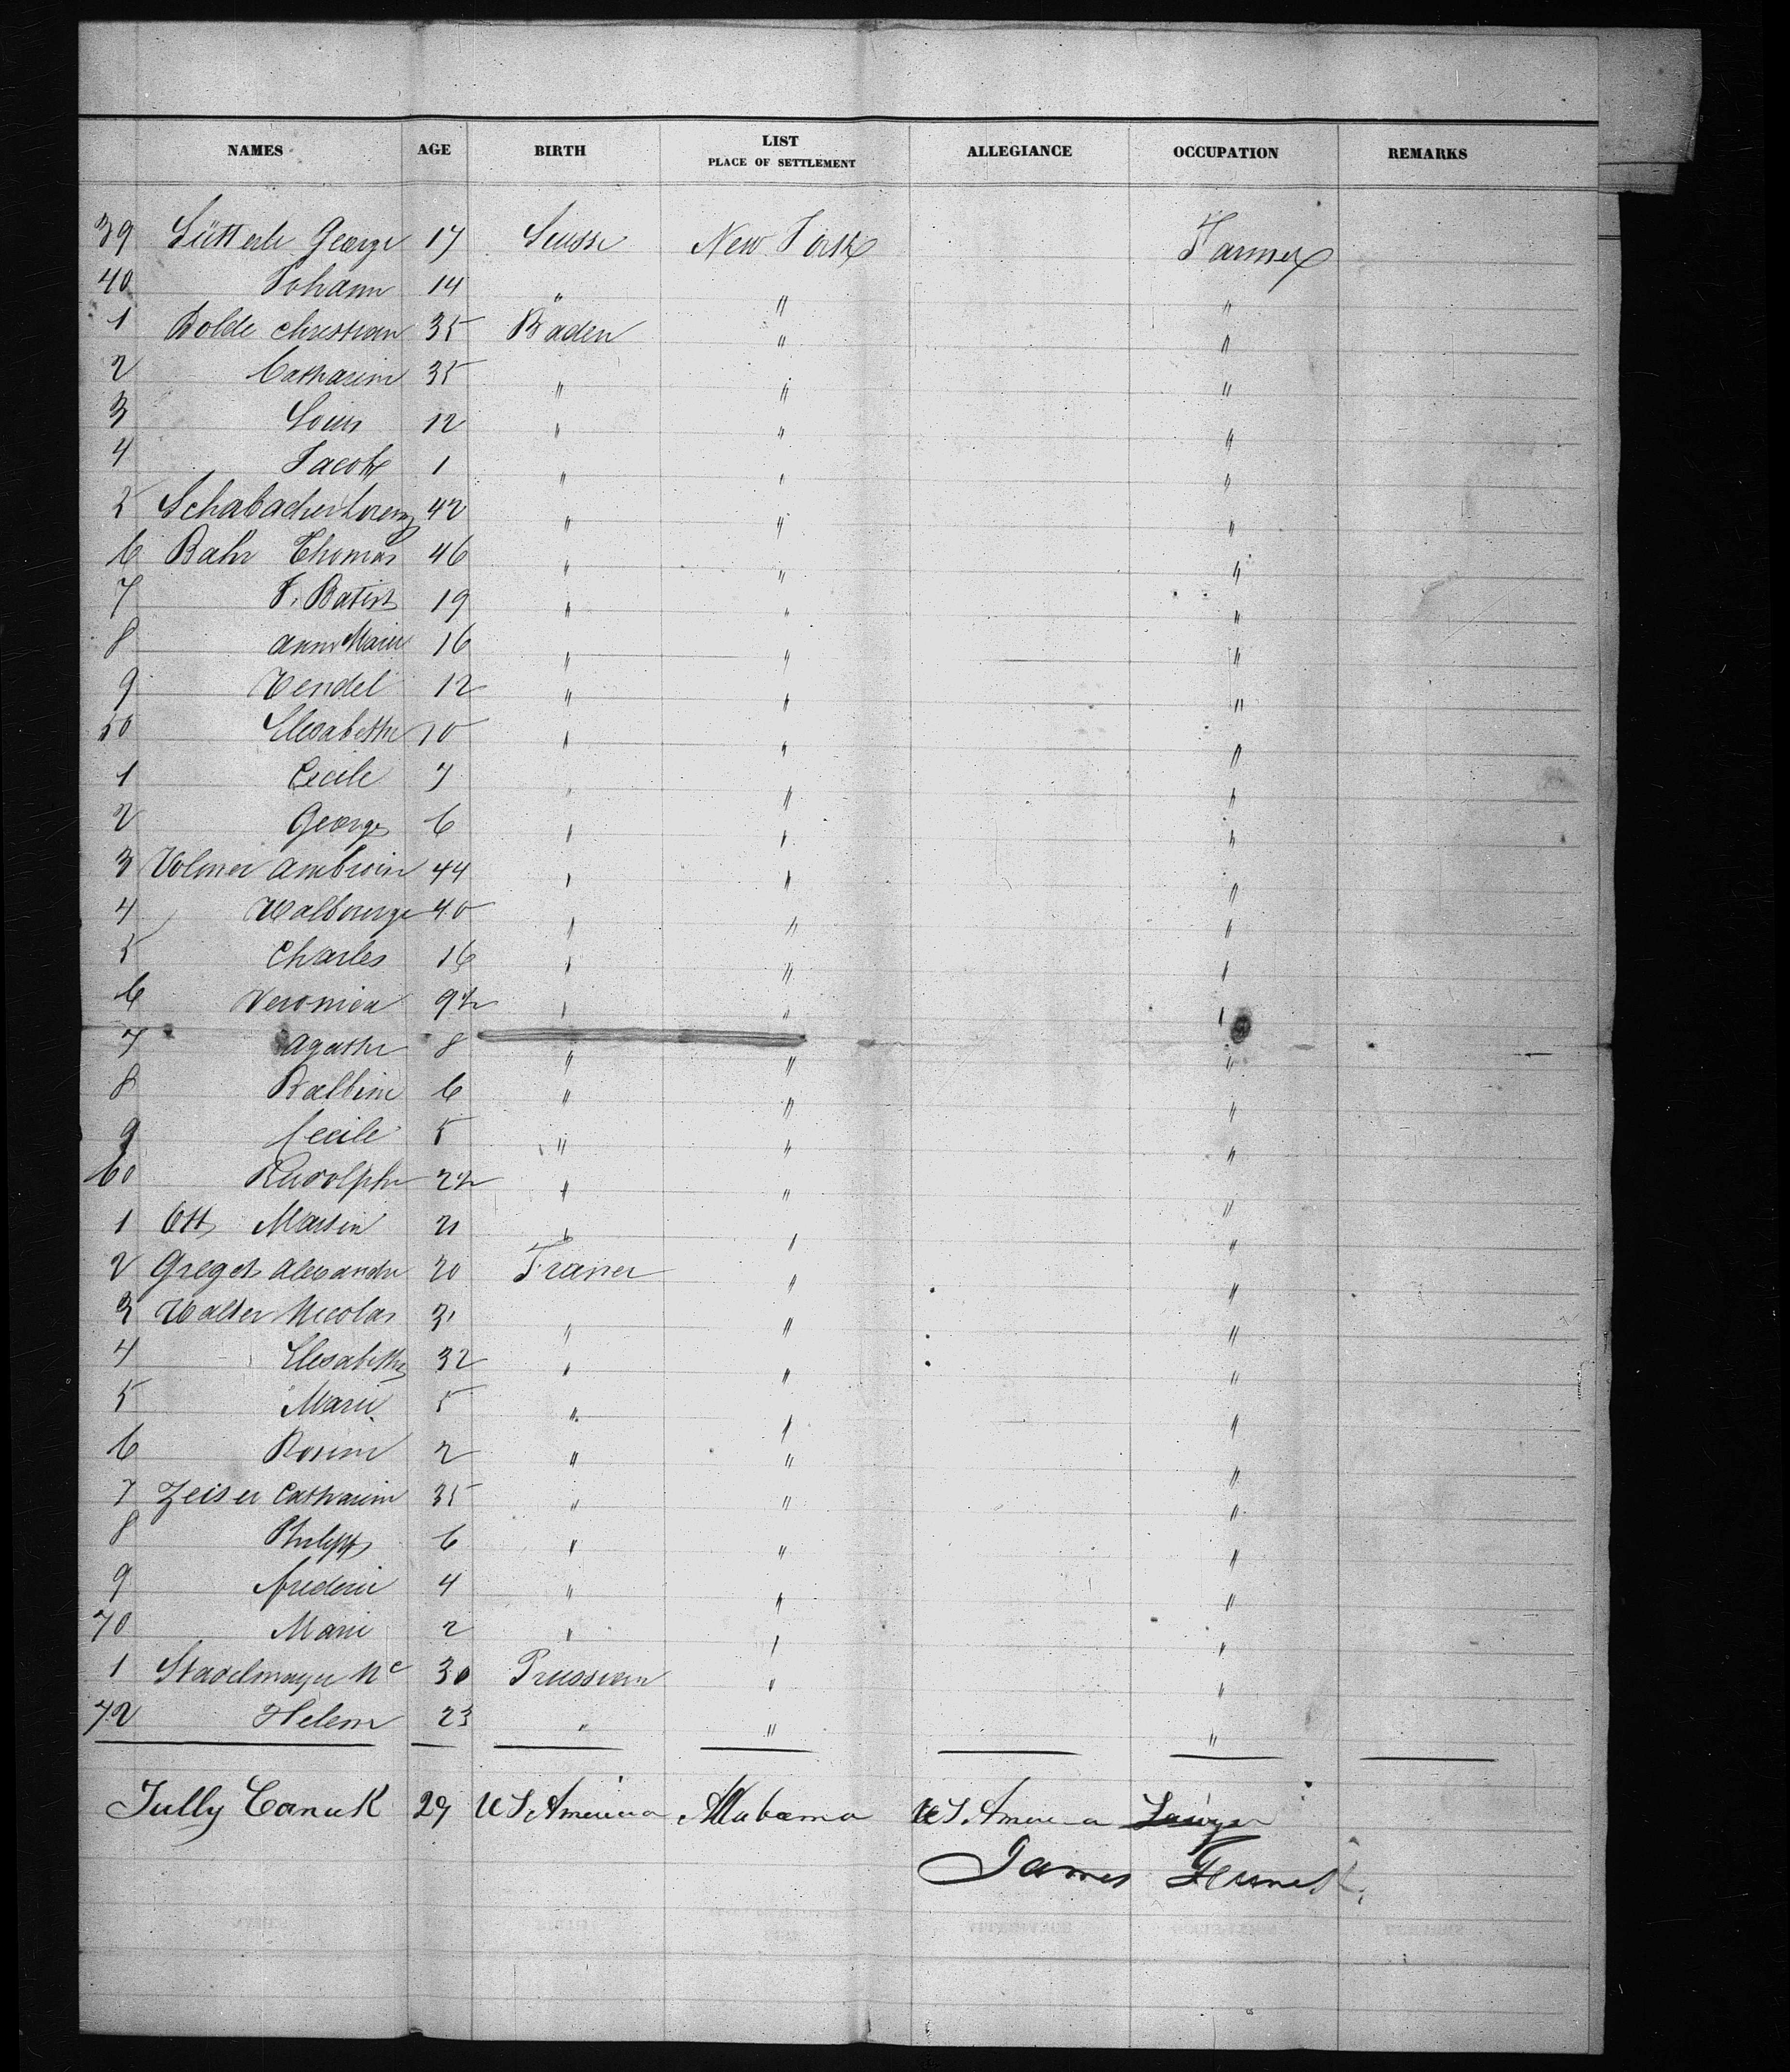 NAMES AGE BIRTH LIST PLACE OF SETTLEMENT ALLEGIANCE OCCUPATION REMARKS
39 Sütterle George 17 Suisse New York Farmer
40 Johann 14 " " "
1 Bolde Christian 35 Baden " "
2 Catharine 35 " " "
3 Louis 12 " " "
4 Jacob 1 " " "
5 Schabacher Lorenz 42 " " "
6 Bahr Thomas 46 " " "
7 J. Batist 19 " " "
8 Anne Marie 16 " " "
9 Wendel 12 " " "
50 Elisabethe 10 " " "
1 Cecile 7 " " "
2 George 6 " " "
3 Volmer Ambroise 44 " " "
4 Walbourge 40 " " "
5 Charles 16 " " "
6 Veronica 9½ " " "
7 Agathe 8 " " "
8 Balbine 6 " " "
9 Cecile 5 " " "
60 Rudolphe 2½ " " "
1 Ott Martin 21 " " "
2 Greget Alexandre 20 France " "
3 Walter Nicolas 31 " " "
4 Elisabethe 32 " " "
5 Marie 5 " " "
6 Rosine 2 " " "
7 Zeiser Catharine 35 " " "
8 Philipp 6 " " "
9 frederic 4 " " "
70 Marie 2 " " "
1 Stadelmayer Nc 30 Prussian " "
72 Helene 23 " " "
Tully Canuk 29 US America Alabama US. America Lawyer
James